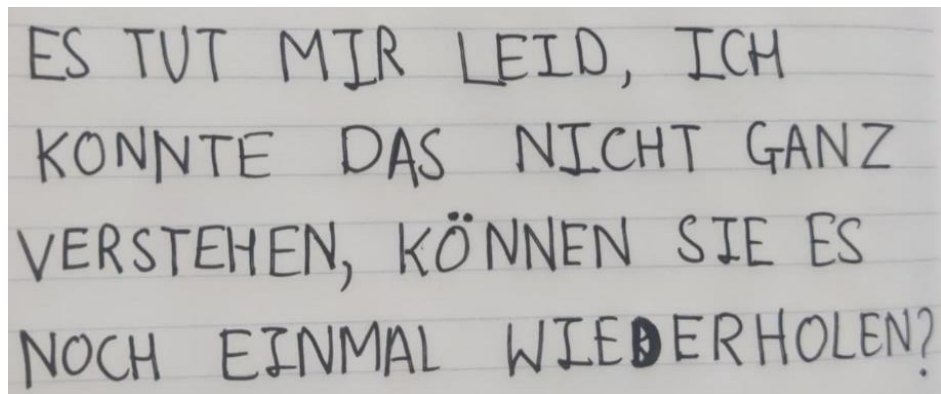 ES TUT MIR LEID, ICH
KONNTE DAS NICHT GANZ
VERSTEHEN, KÖNNEN SIE ES
NOCH EINMAL WIEDERHOLEN?